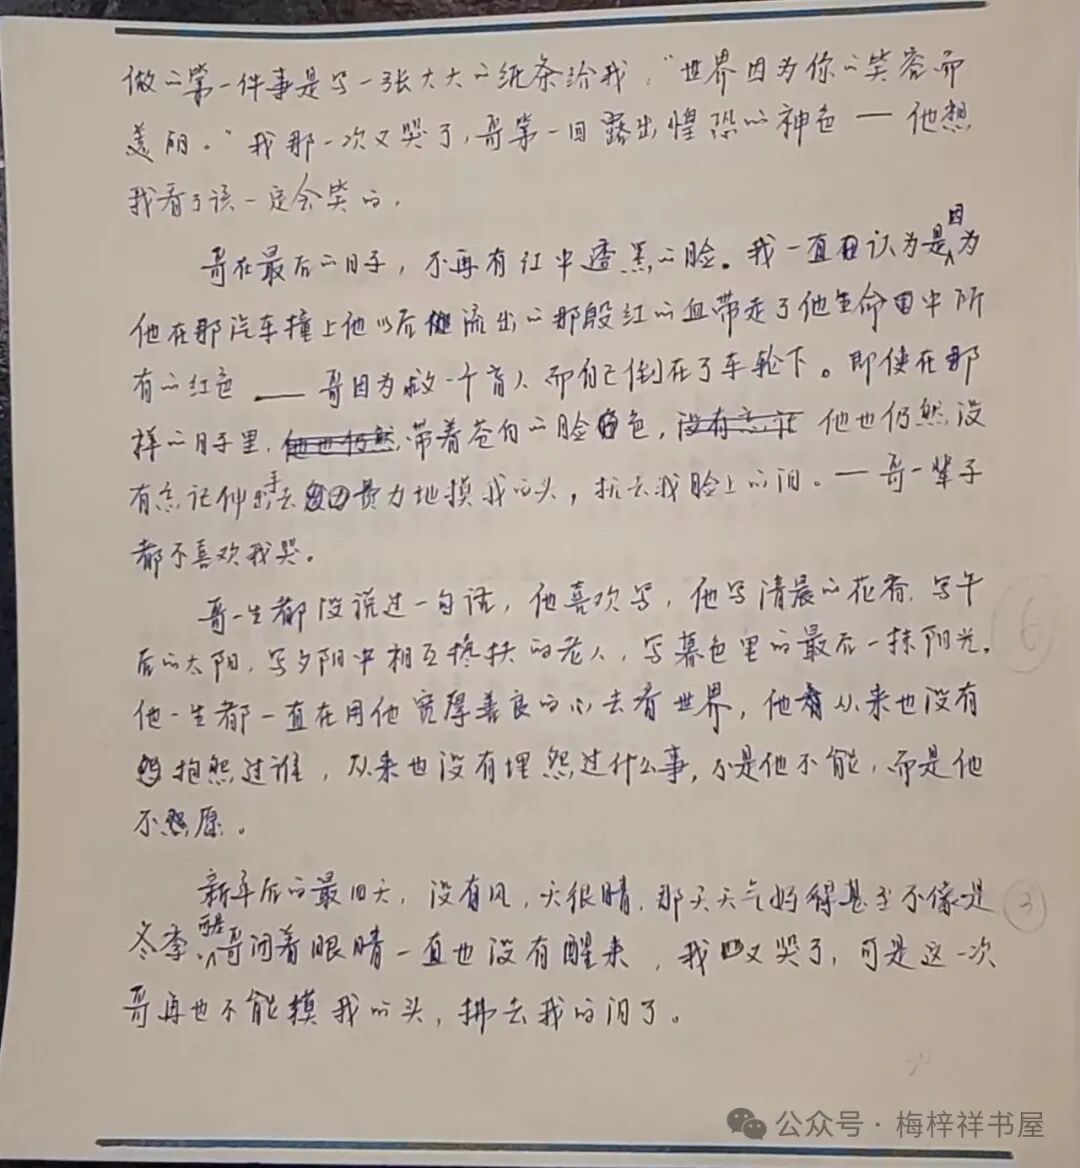 做的第一件事是写一张大大的纸条给我，“世界因为你的笑容而
美丽。”我那一次又哭了，哥第一回露出惶恐的神色——他想
我看了该一定会笑的，
哥在最后的日子，不再有红中透黑的脸。我一直认为是因为
他在那汽车撞上他以后流出的那殷红的血带走了他生命中所
有的红色——哥因为救一个盲人而自己倒在了车轮下。即使在那
样的日子里，带着苍白的脸色，他也仍然没
有忘记伸出手去费力地摸我的头，抗去我脸上的泪。——哥一辈子
都不喜欢我哭。
哥一生都没说过一句话，他喜欢写，他写清晨的花香，写午
后的太阳，写夕阳中相互搀扶的老人，写暮色里的最后一抹阳光。
他一生都一直在用他宽厚善良的心去看世界，他从来也没有
抱怨过谁，从来也没有埋怨过什么事，不是他不能，而是他
不愿。
新年后的最旧天，没有风，天很晴，那天天气好得甚至不像是
冬季，可是哥闭着眼睛一直也没有醒来，我又哭了，可是这一次
哥再也不能摸我的头，拂去我的泪了。
6
3
公众号·梅梓祥书屋